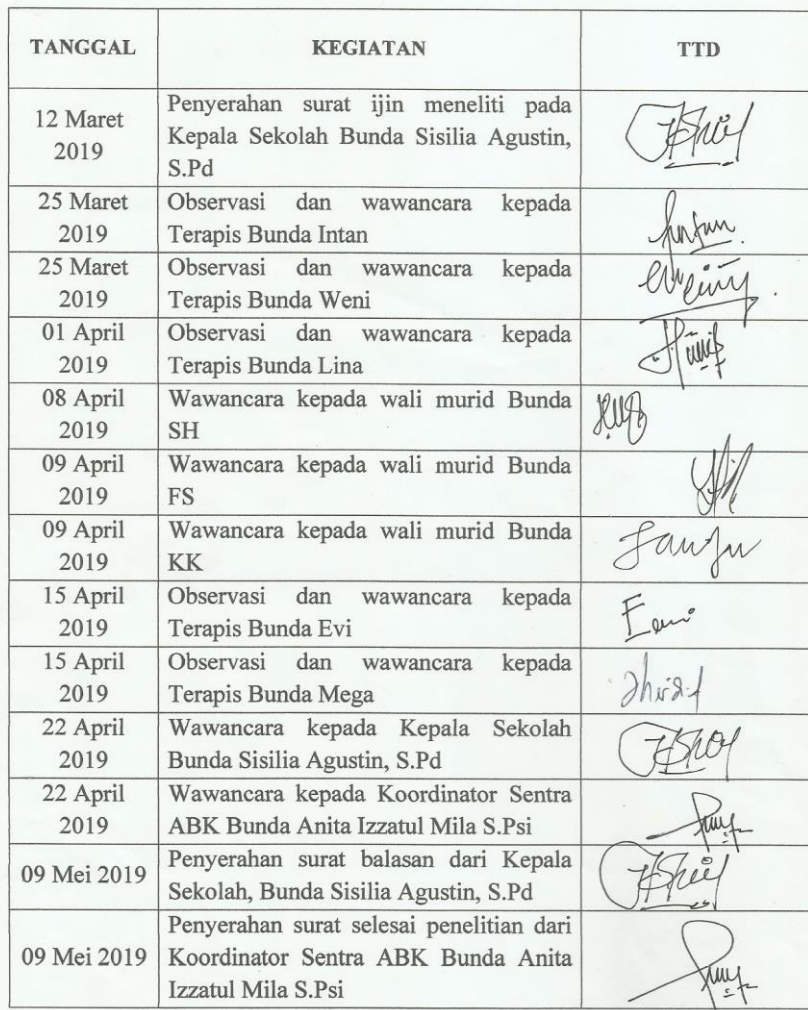 TANGGAL KEGIATAN TTD
12 Maret
2019
Penyerahan surat ijin meneliti pada
Kepala Sekolah Bunda Sisilia Agustin,
S.Pd
25 Maret
2019
Observasi dan wawancara kepada
Terapis Bunda Intan
25 Maret
2019
Observasi dan wawancara kepada
Terapis Bunda Weni
01 April
2019
Observasi dan wawancara kepada
Terapis Bunda Lina
08 April
2019
Wawancara kepada wali murid Bunda
SH
09 April
2019
Wawancara kepada wali murid Bunda
FS
09 April
2019
Wawancara kepada wali murid Bunda
KK
15 April
2019
Observasi dan wawancara kepada
Terapis Bunda Evi
15 April
2019
Observasi dan wawancara kepada
Terapis Bunda Mega
22 April
2019
Wawancara kepada Kepala Sekolah
Bunda Sisilia Agustin, S.Pd
22 April
2019
Wawancara kepada Koordinator Sentra
ABK Bunda Anita Izzatul Mila S.Psi
09 Mei 2019
Penyerahan surat balasan dari Kepala
Sekolah, Bunda Sisilia Agustin, S.Pd
09 Mei 2019
Penyerahan surat selesai penelitian dari
Koordinator Sentra ABK Bunda Anita
Izzatul Mila S.Psi